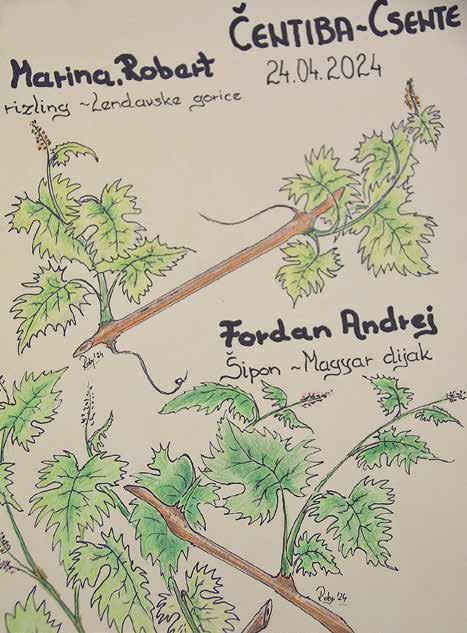 ČENTIBA-CSENTE
24.04.2024
Marina, Robert
rizling ~ Lendavske gorice
Roby '24
Fordan Andrej
Šipon ~ Magyar dijak
Roby '24